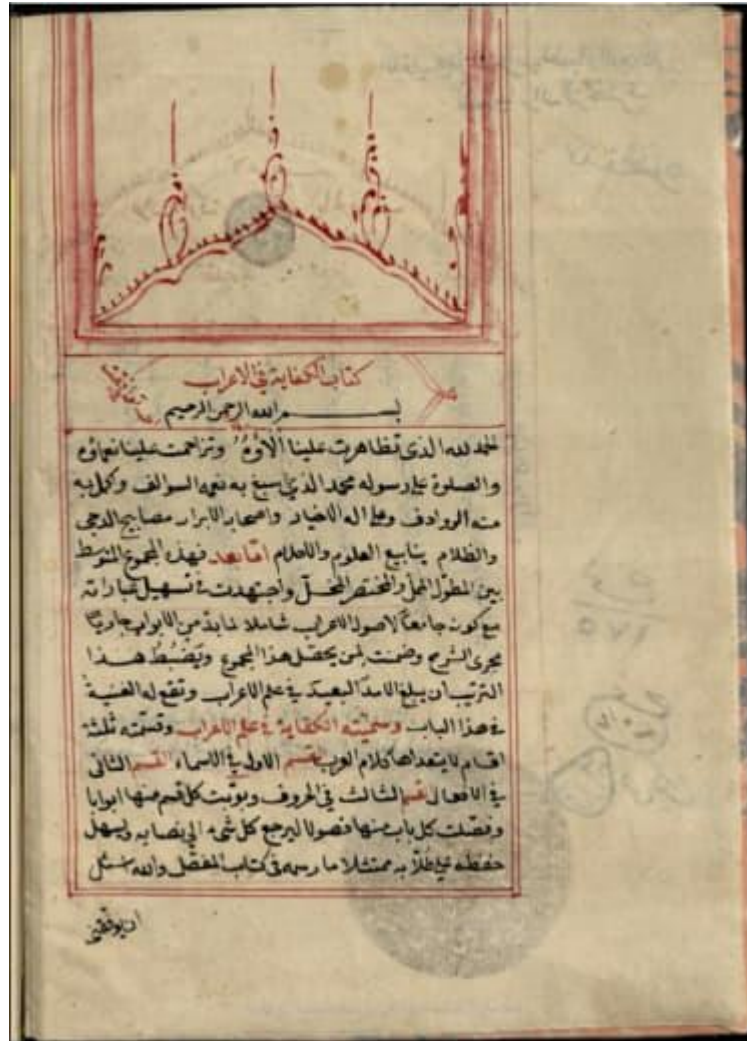 كتاب الكفاية في الاعراب
بسم الله الرحمن الرحيم
الحمد لله الذى تظاهرت علينا آلاؤه وتزاحمت علينا نعماؤه
والصلوة على رسوله محمد الذى سبغ به نعمه السوالف وكمل به
منه الروادف وعلى اله الاخيار واصحابه الابرار مصابيح الدجى
والظلام ينابيع العلوم والاحلام اما بعد فهذا المجموع المتوسط
بين المطول الممل والمختصر المخل واجتهدت فى تسهيل عباراته
مع كونه جامعا لاصول الاعراب شاملا من الابواب جاريا
مجرى الشرح وضمنت لمن يحصل هذا المجموع ويضبط هذا
الترتيب ان يبلغ الامد البعيد فى علم الاعراب وتقع له الغنية
فى هذا الباب وسميته الكفاية فى علم الاعراب وقسمته ثلثة
اقسام لا يتعداها كلام العرب القسم الاول فى الاسماء القسم الثانى
فى الافعال القسم الثالث فى الحروف وبوّبت كل قسم منها ابوابا
وفصّلت كل باب منها فصولا ليرجع كل شىء الى نصابه ويسهل
حفظه على طلّابه ممتثلا ما رسمه فى كتاب المفصّل والله اسئل
ان يوفقنى